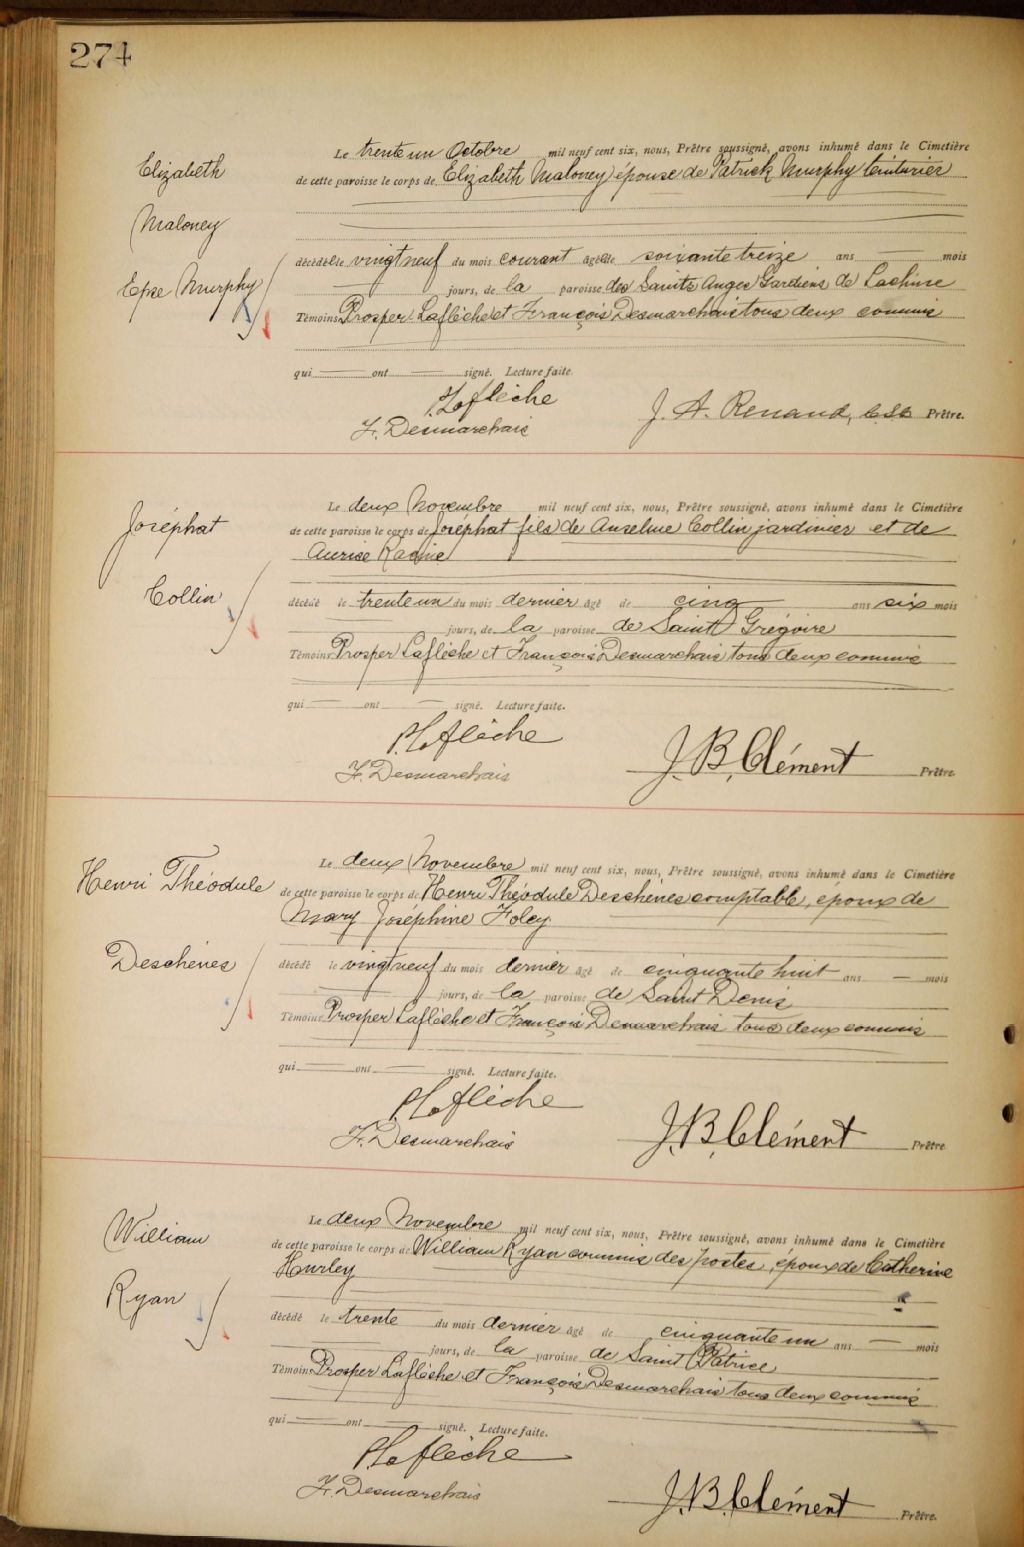 274
Elizabeth
Maloney
Epse Murphy
Le trente un Octobre mil neuf cent six, nous, Prêtre soussigné, avons inhumé dans le Cimetière
de cette paroisse le corps de Elizabeth Maloney épouse de Patrick Murphy teinturier
décédée le vingt neuf du mois courant âgée de soixante treize ans — mois
— jours, de la paroisse des Saints Anges Gardiens de Lachine
Témoins Prosper Laflèche et François Desmarchais tous deux commis
qui — ont — signé. Lecture faite.
P. Laflèche
F. Desmarchais
J. A. Renaud, Prêtre.
Joséphat
Collin
Le deux Novembre mil neuf cent six, nous, Prêtre soussigné, avons inhumé dans le Cimetière
de cette paroisse le corps de Joséphat fils de Anselme Collin jardinier et de
Racine
décédé le trente un du mois dernier âgé de cinq ans six mois
— jours, de la paroisse de Saint Grégoire
Témoins Prosper Laflèche et François Desmarchais tous deux commis
qui — ont — signé. Lecture faite.
P. Laflèche
F. Desmarchais
J. B. Clément Prêtre.
Henri Théodule
Deschènes
Le deux Novembre mil neuf cent six, nous, Prêtre soussigné, avons inhumé dans le Cimetière
de cette paroisse le corps de Henri Théodule Deschènes comptable, époux de
Mary Joséphine Foley
décédé le vingt neuf du mois dernier âgé de cinquante huit ans — mois
— jours, de la paroisse de Saint Denis
Témoins Prosper Laflèche et François Desmarchais tous deux commis
qui — ont — signé. Lecture faite.
P. Laflèche
F. Desmarchais
J. B. Clément Prêtre
William
Ryan
Le deux Novembre mil neuf cent six, nous, Prêtre soussigné, avons inhumé dans le Cimetière
de cette paroisse le corps de William Ryan commis des postes, époux de Catherine
Hurley
décédé le trente du mois dernier âgé de cinquante un ans — mois
— jours, de la paroisse de Saint Patrice
Témoins Prosper Laflèche et François Desmarchais tous deux commis
qui — ont — signé. Lecture faite.
P. Laflèche
F. Desmarchais
J. B. Clément Prêtre.